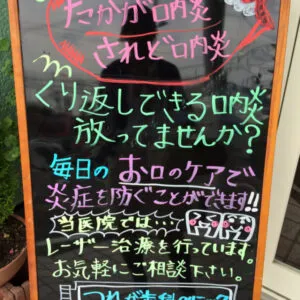 たかが口内炎
されど口内炎
くり返しできる口内炎
放ってませんか?
毎日のお口のケアで
炎症を防ぐことができます!!
当医院では…
レーザー治療を行っています。
お気軽にご相談下さい。